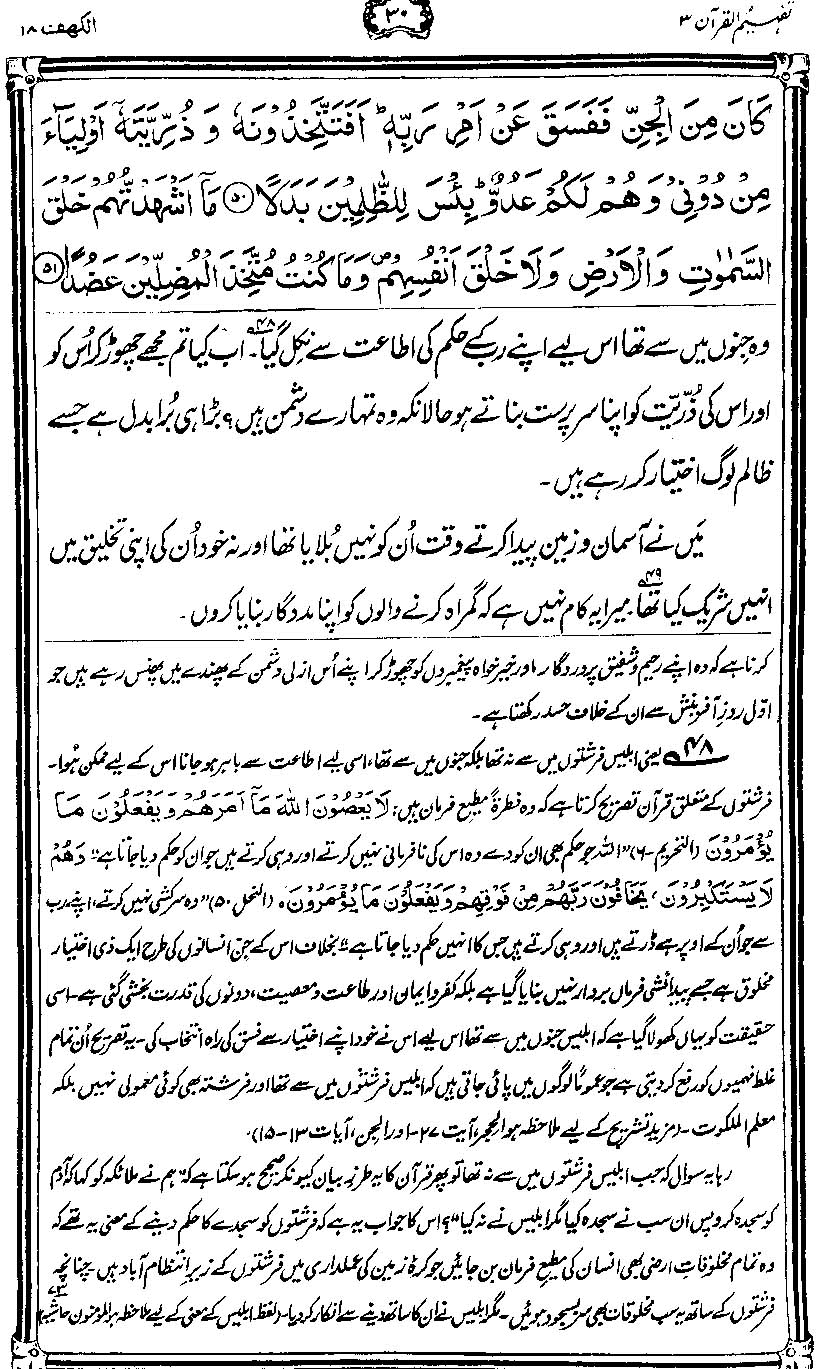 تفہیم القرآن ۳
۳۰
الکھف ۱۸
كَانَ مِنَ الْجِنِّ فَفَسَقَ عَنْ اَمْرِ رَبِّهٖ ؕ اَفَتَتَّخِذُوْنَهٗ وَ ذُرِّيَّتَهٗۤ اَوْلِيَآءَ
مِنْ دُوْنِيْ وَهُمْ لَكُمْ عَدُوٌّ ؕ بِئْسَ لِلظّٰلِمِيْنَ بَدَلًا ۵۰ مَاۤ اَشْهَدْتُّهُمْ خَلْقَ
السَّمٰوٰتِ وَالْاَرْضِ وَلَا خَلْقَ اَنْفُسِهِمْ ۪ وَمَا كُنْتُ مُتَّخِذَ الْمُضِلِّيْنَ عَضُدًا ۵۱
وہ جنوں میں سے تھا اس لیے اپنے رب کے حکم کی اطاعت سے نکل گیا۔۴۸ اب کیا تم مجھے چھوڑ کر اُس کو
اور اس کی ذُرِّیّت کو اپنا سرپرست بناتے ہو حالانکہ وہ تمہارے دشمن ہیں؟ بڑا ہی بُرا بدل ہے جسے
ظالم لوگ اختیار کر رہے ہیں۔
مَیں نے آسمان و زمین پیدا کرتے وقت اُن کو نہیں بُلایا تھا اور نہ خود اُن کی اپنی تخلیق میں
انہیں شریک کیا تھا۔۴۹ میرا یہ کام نہیں ہے کہ گمراہ کرنے والوں کو اپنا مددگار بنایا کروں۔
کرنا ہے کہ وہ اپنے رحیم و شفیق پروردگار اور خیر خواہ پیغمبروں کو چھوڑ کر اپنے اُس ازلی دشمن کے پھندے میں پھنس رہے ہیں جو
اوّل روزِ آفرینش سے ان کے خلاف حسد رکھتا ہے۔
۴۸ یعنی ابلیس فرشتوں میں سے نہ تھا بلکہ جنوں میں سے تھا، اسی لیے اطاعت سے باہر ہو جانا اس کے لیے ممکن ہُوا۔
فرشتوں کے متعلق قرآن تصریح کرتا ہے کہ وہ فطرۃً مطیع فرمان ہیں: لَا يَعْصُوْنَ اللّٰهَ مَاۤ اَمَرَهُمْ وَيَفْعَلُوْنَ مَا
يُؤْمَرُوْنَ (التحریم-۶) "اللہ جو حکم بھی ان کو دے وہ اس کی نافرمانی نہیں کرتے اور وہی کرتے ہیں جو ان کو حکم دیا جاتا ہے" وَهُمْ
لَا يَسْتَكْبِرُوْنَ، يَخَافُوْنَ رَبَّهُمْ مِّنْ فَوْقِهِمْ وَيَفْعَلُوْنَ مَا يُؤْمَرُوْنَ۔ (النحل ۵۰) "وہ سرکشی نہیں کرتے، اپنے رب
سے جو اُن کے اوپر ہے ڈرتے ہیں اور وہی کرتے ہیں جس کا انہیں حکم دیا جاتا ہے" بخلاف اس کے جن انسانوں کی طرح ایک ذی اختیار
مخلوق ہے جسے پیدائشی فرماں بردار نہیں بنایا گیا ہے بلکہ کفر و ایمان اور طاعت و معصیت، دونوں کی قدرت بخشی گئی ہے۔ اسی
حقیقت کو یہاں کھولا گیا ہے کہ ابلیس جنوں میں سے تھا اس لیے اس نے خود اپنے اختیار سے فسق کی راہ انتخاب کی۔ یہ تصریح اُن تمام
غلط فہمیوں کو رفع کر دیتی ہے جو عموماً لوگوں میں پائی جاتی ہیں کہ ابلیس فرشتوں میں سے تھا اور فرشتہ بھی کوئی معمولی نہیں بلکہ
معلم الملکوت۔ (مزید تشریح کے لیے ملاحظہ ہو الحجر، آیت ۲۷۔ اور الجن، آیات ۱۳-۱۵)۔
رہا یہ سوال کہ جب ابلیس فرشتوں میں سے نہ تھا تو پھر قرآن کا یہ طرزِ بیان کیونکر صحیح ہو سکتا ہے کہ "ہم نے ملائکہ کو کہا کہ آدم
کو سجدہ کرو پس ان سب نے سجدہ کیا مگر ابلیس نے نہ کیا"؟ اس کا جواب یہ ہے کہ فرشتوں کو سجدے کا حکم دینے کے معنی یہ تھے کہ
وہ تمام مخلوقاتِ ارضی بھی انسان کی مطیع فرمان بن جائیں جو کرۂ زمین کی عملداری میں فرشتوں کے زیرِ انتظام آباد ہیں۔ چنانچہ
فرشتوں کے ساتھ یہ سب مخلوقات بھی سر بسجود ہوئیں۔ مگر ابلیس نے ان کا ساتھ دینے سے انکار کر دیا۔ (لفظ ابلیس کے معنی کے لیے ملاحظہ ہو المومنون حاشیہ ۷۳)